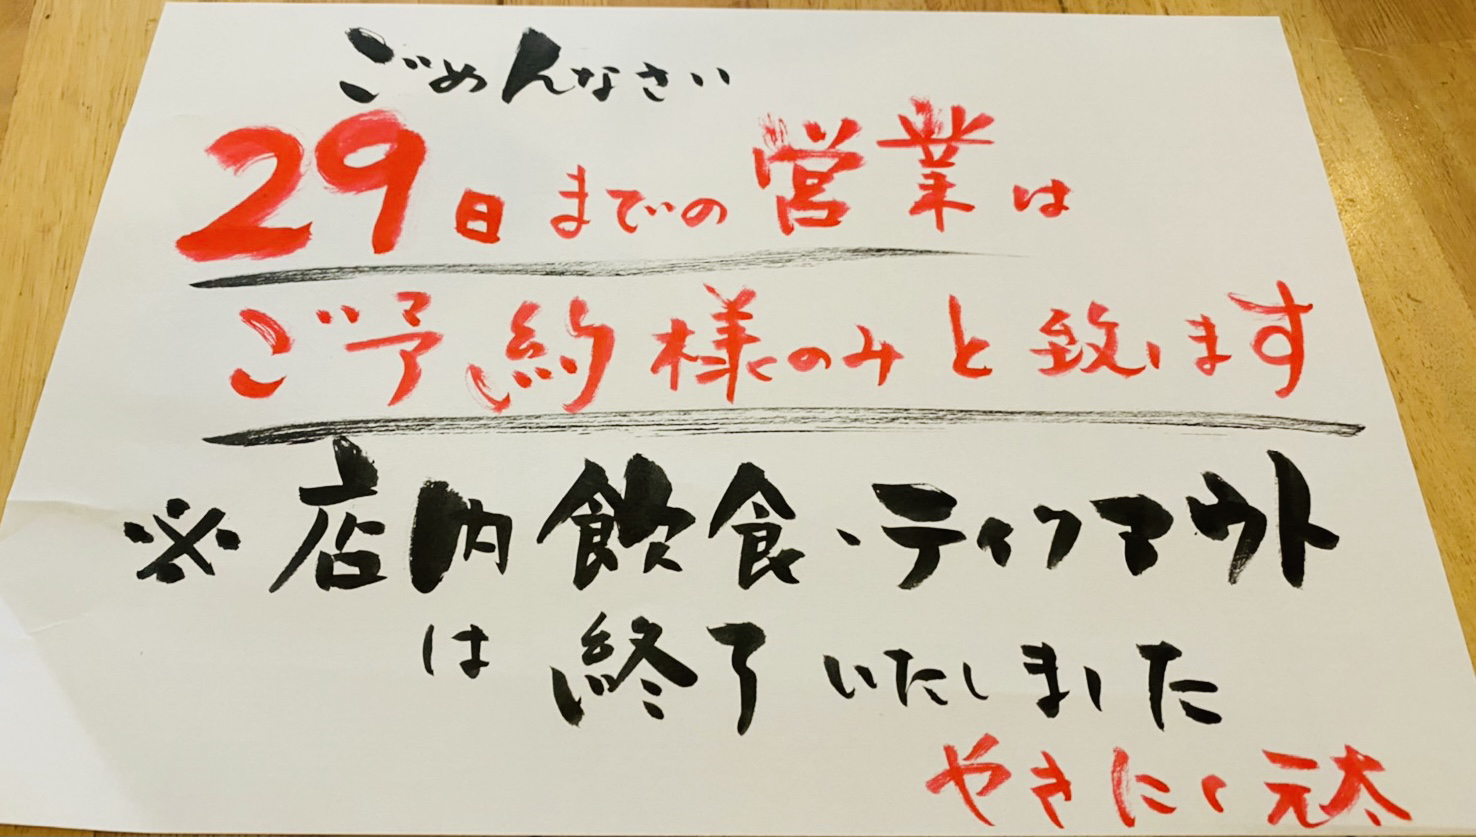 ごめんなさい
29日までの営業は
ご予約様のみと致します
※店内飲食・ティクアウト
は終了いたしました
やきにく元太